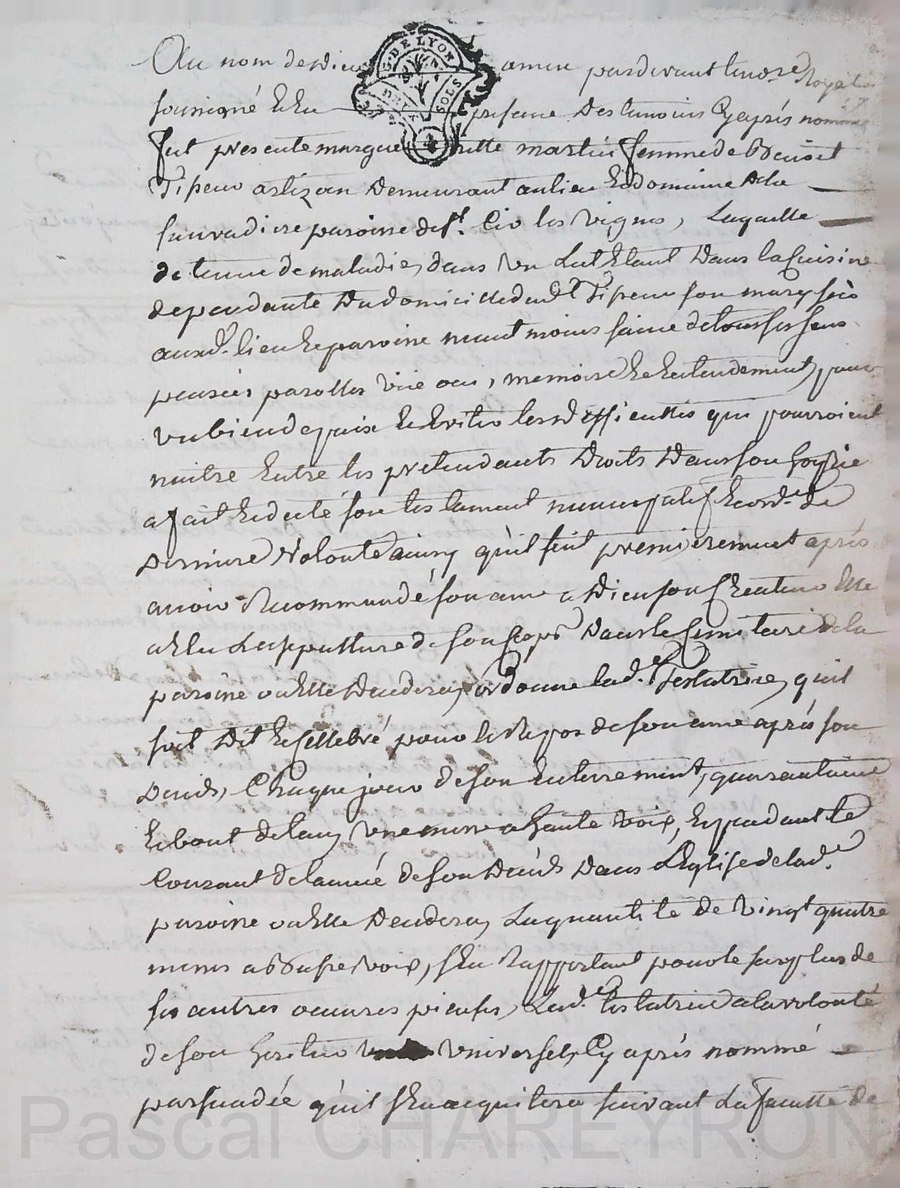 Au nom de Dieu amen pardevant le no.re Royal
soussigné et en presence des temoins cy après nommes
G. DE LYON
DEUX SOLS
fut presente margueritte martin femme de Benoist
Tipeur artizan demeurant au lieu et domaine de la
paroisse de St. Cir les vignes, Laquelle
detenue de maladie, dans un Lit Etant Dans la Cuisine
dependante Du domicille dud.t Tipeur son mary scis
auxd. lieu et paroisse neant moins saine de tous ses sens
pensées, parolles vüe ouie, memoire et Entendement, pour
un bien de paix et Eviter les difficultés qui pourroient
naitre Entre les pretendants Droits Dans son hoirie
a fait et dicté son testament nuncupatif et ord.e de
Derniere Volonté ainsy qu'il suit premierement après
avoir Recommandé son ame a Dieu son Createur Elle
a Elu La seputture de son Corps Dans le Cimetiere de la
paroisse ou Elle Decedera, ordonne lad.e Testatrice, qu'il
soit Dit et Cellebré pour le Repos de son ame après son
Decès, Chaque jour de son Enterrement, quarantaine
et bout de lan, une messe a haute voix, Et pendant le
Courant de lannée de son Decès Dans L'Eglise de lad.e
paroisse ou Elle Decedera, La quantité de vingt quatre
messes a Basse voix, s'en Rapportant pour le surplus de
ses autres oeuvres pieuses, Lad.e testatrice a la volonté
de son heritier universel, Cy après nommé
persuadée qu'il s'en acquitera suivant La faculté de
Pascal CHAREYRON